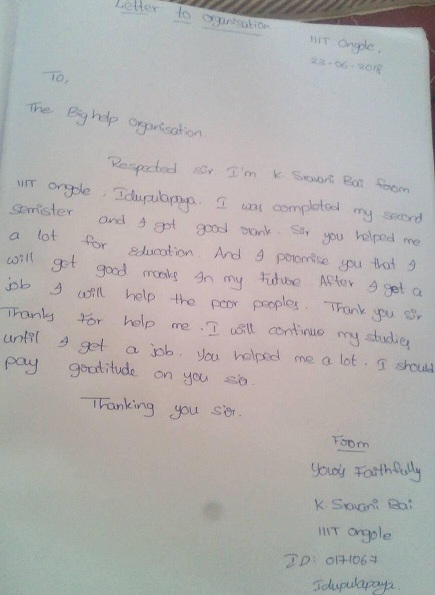 Letter to organisation
IIIT Ongole,
23-06-2018
To,
The Bighelp Organisation.
Respected sir I'm K Sravani Bai from
IIIT Ongole, Idupulapaya. I was completed my second
semister and I got good rank. Sir you helped me
a lot for education. And I poromise you that I
will get good marks In my future. After I get a
job I will help the poor peoples. Thank you sir
Thanks for help me. I will continue my studies
until I get a job. You helped me a lot. I should
pay gratitude on you sir.
Thanking you sir.
From
yours Faithfully
K. Sravani Bai
IIIT Ongole
ID: 0171067
Idupulapaya.